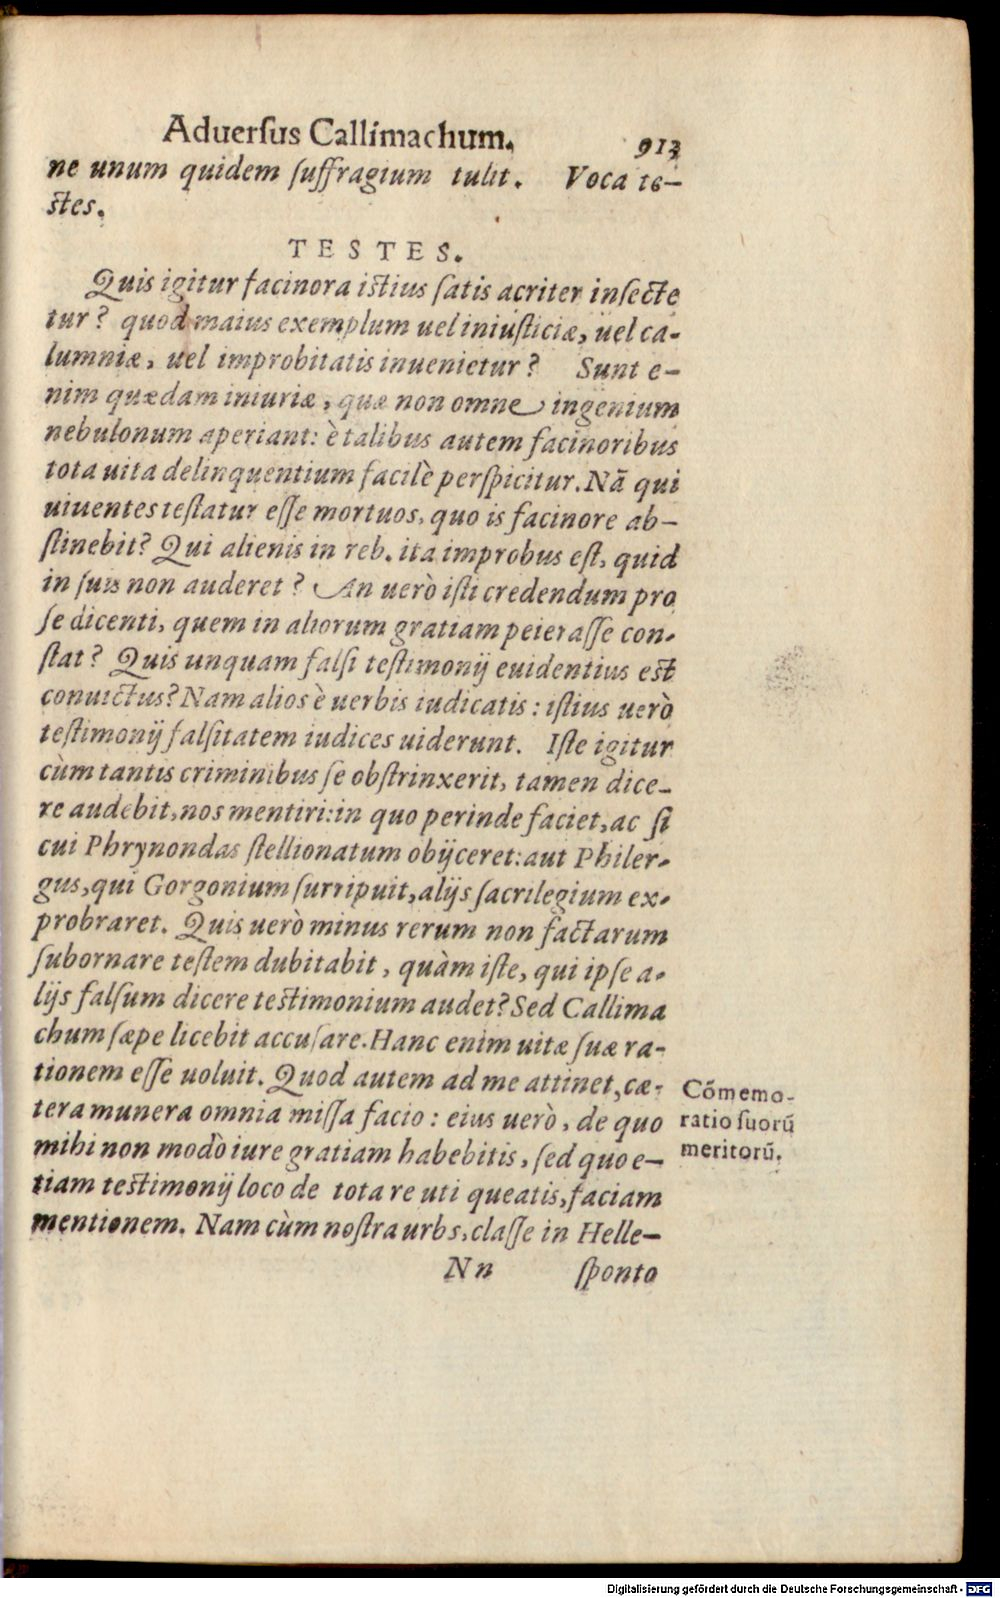 Aduerſus Callimachum. 913
ne unum quidem ſuffragium tulit. Voca te-
ſtes.
TESTES.
Quis igitur facinora iſtius ſatis acriter inſecte
tur? quod maius exemplum uel iniuſticiæ, uel ca-
lumniæ, uel improbitatis inuenietur? Sunt e-
nim quædam iniuriæ, quæ non omne ingenium
nebulonum aperiant: è talibus autem facinoribus
tota uita delinquentium facilè perſpicitur. Nā qui
uiuentes teſtatur eſſe mortuos, quo is facinore ab-
ſtinebit? Qui alienis in reb. ita improbus eſt, quid
in ſuis non auderet? An uerò iſti credendum pro
ſe dicenti, quem in aliorum gratiam peieraſſe con-
ſtat? Quis unquam falſi teſtimonij euidentius eſt
conuictus? Nam alios è uerbis iudicatis: iſtius uerò
teſtimonij falſitatem iudices uiderunt. Iſte igitur
cùm tantis criminibus ſe obſtrinxerit, tamen dice-
re audebit, nos mentiri: in quo perinde faciet, ac ſi
cui Phrynondas ſtellionatum obijceret: aut Philer-
gus, qui Gorgonium ſurripuit, alijs ſacrilegium ex-
probraret. Quis uerò minus rerum non factarum
ſubornare teſtem dubitabit, quàm iſte, qui ipſe a-
lijs falſum dicere teſtimonium audet? Sed Callima
chum ſæpe licebit accuſare. Hanc enim uitæ ſuæ ra-
tionem eſſe uoluit. Quod autem ad me attinet, cæ-
tera munera omnia miſſa facio: eius uerò, de quo
mihi non modò iure gratiam habebitis, ſed quo e-
tiam teſtimonij loco de tota re uti queatis, faciam
mentionem. Nam cùm noſtra urbs, claſſe in Helle-
Cōmemo-
ratio ſuorū
meritorū.
Nn ſponto
Digitalisierung gefördert durch die Deutsche Forschungsgemeinschaft - DFG